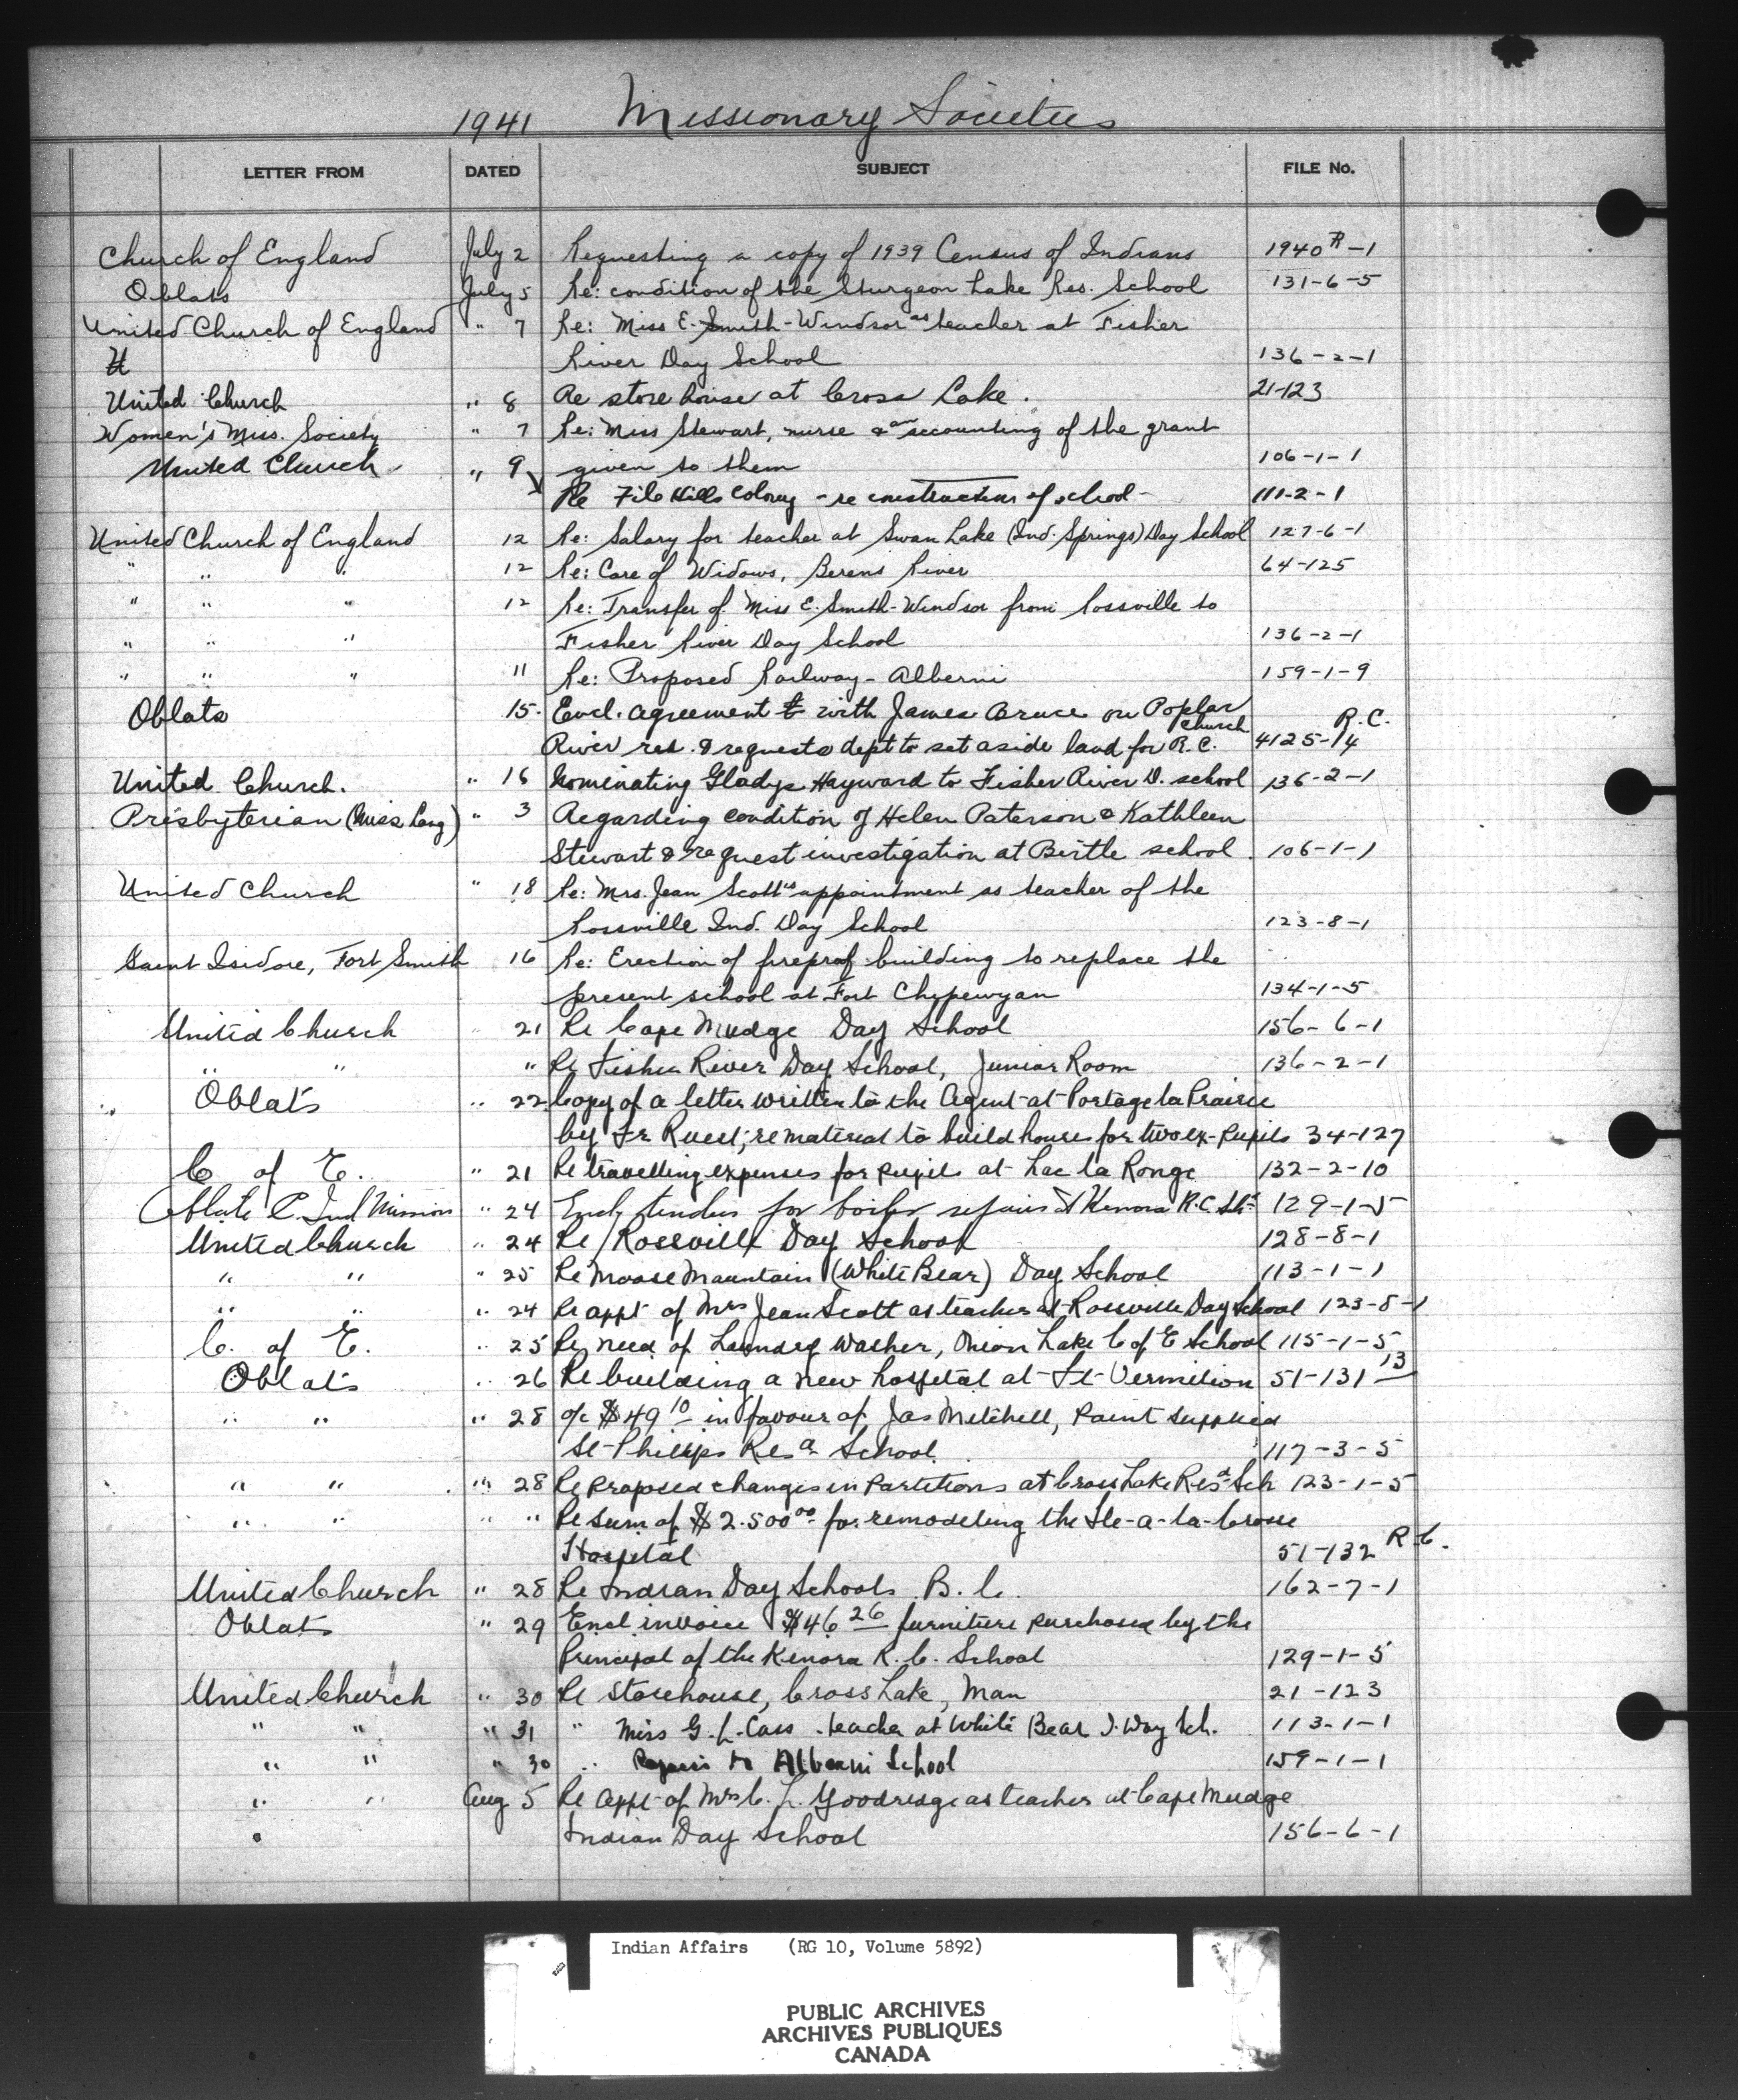 1941 Missionary Societies
LETTER FROM DATED SUBJECT FILE No.
Church of England July 2 Requesting a copy of 1939 Census of Indians 1940 R-1
Oblats July 5 Re: condition of the Sturgeon Lake Res. School 131-6-5
United Church of England " 7 Re: Miss E. Smith-Windsor as teacher at Fisher
U River Day School 136-2-1
United Church " 8 Re store house at Cross Lake. 21-123
Women's Miss. Society " 7 Re: Miss Stewart, nurse & an accounting of the grant
given to them 106-1-1
United Church " 9 Re File Hills Colony - re construction of school - 111-2-1
United Church of England 12 Re: Salary for teacher at Swan Lake (Ind. Springs) Day School 127-6-1
" " " 12 Re: Care of Widows, Berens River 64-125
" " " 12 Re: Transfer of Miss E. Smith-Windsor from Rossville to
" " " Fisher River Day School 136-2-1
" " " 11 Re: Proposed Railway - Alberni 159-1-9
Oblats 15. Encl. agreement with James Bruce on Poplar
River res. & requests dept to set aside land for R.C. Church 4125-14 R.C.
United Church. " 16 Nominating Gladys Hayward to Fisher River D. school 136-2-1
Presbyterian (Miss Lang) " 3 Regarding condition of Helen Paterson & Kathleen
Stewart & request investigation at Birtle school. 106-1-1
United Church " 18 Re: Mrs. Jean Scott's appointment as teacher of the
Rossville Ind. Day School 123-8-1
Saint Isidore, Fort Smith 16 Re: Erection of fireproof building to replace the
present school at Fort Chipewyan 134-1-5
United Church " 21 Re Cape Mudge Day School 156-6-1
" " " Re Fisher River Day School, Junior Room 136-2-1
Oblats " 22 Copy of a letter written to the Agent at Portage la Prairie
by Fr Ruest, re material to build houses for two ex-pupils 34-127
C of E. " 21 Re travelling expenses for pupils at Lac la Ronge 132-2-10
Oblate C. Ind Mission " 24 Encl. tenders for boiler repairs at Kenora R.C. Sch 129-1-5
United Church " 24 Re Rossville Day School 128-8-1
" " " 25 Re Moose Mountain (White Bear) Day School 113-1-1
" " " 24 Re appt of Mrs Jean Scott as teacher at Rossville Day School 123-8-1
C. of E. " 25 Re need of Laundry Washer, Onion Lake C of E School 115-1-5
Oblats " 26 Re building a new hospital at Ft Vermilion 51-131 13
" " " 28 a/c $49 10 in favour of Jas Mitchell, Paint supplied
St Phillips Res. School 117-3-5
" " " 28 Re proposed changes in Partitions at Cross Lake Res. Sch 123-1-5
" " " " Re Sum of $2.500 00 for remodeling the Ile-a-la-Crosse
Hospital 51-132 R.C.
United Church " 28 Re Indian Day Schools B.C. 162-7-1
Oblats " 29 Encl invoice $46 26 furniture purchased by the
Principal of the Kenora R.C. School 129-1-5
United Church " 30 Re Storehouse, Cross Lake, Man 21-123
" " " 31 " Miss G. L. Cass teacher at White Bear I. Day Sch. 113-1-1
" " " 30 " Repairs to Alberni School 159-1-1
" " Aug 5 Re appt of Mrs C. L. Goodridge as teacher at Cape Mudge
" Indian Day School 156-6-1
Indian Affairs (RG 10, Volume 5892)
PUBLIC ARCHIVES
ARCHIVES PUBLIQUES
CANADA